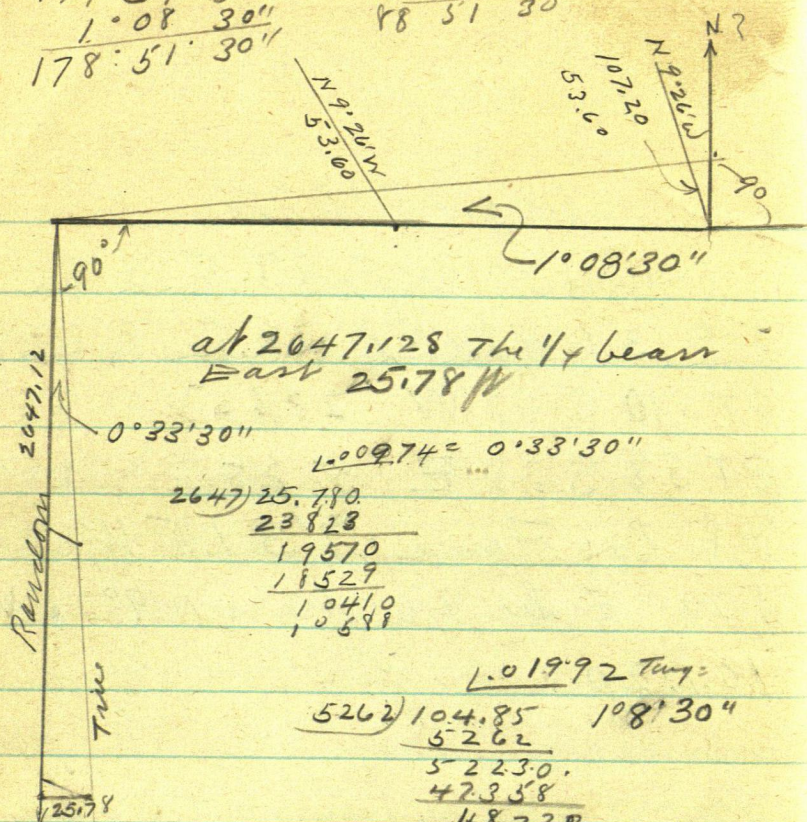 1° 08' 30"
178° 51' 30"
88 51 30
N ?
N 9° 26' W
53.60
N 9° 26' W
107.20
53.60
90
90°
1° 08' 30"
at 2647.128 The 1/4 bears
East 25.78 ft
Random 2647.12
0° 33' 30"
.00974 = 0° 33' 30"
2647) 25.780
23823
19570
18529
10410
10588
True
.01992 Tang =
5262) 104.85 1° 8' 30"
5262
52230.
47358
25.78